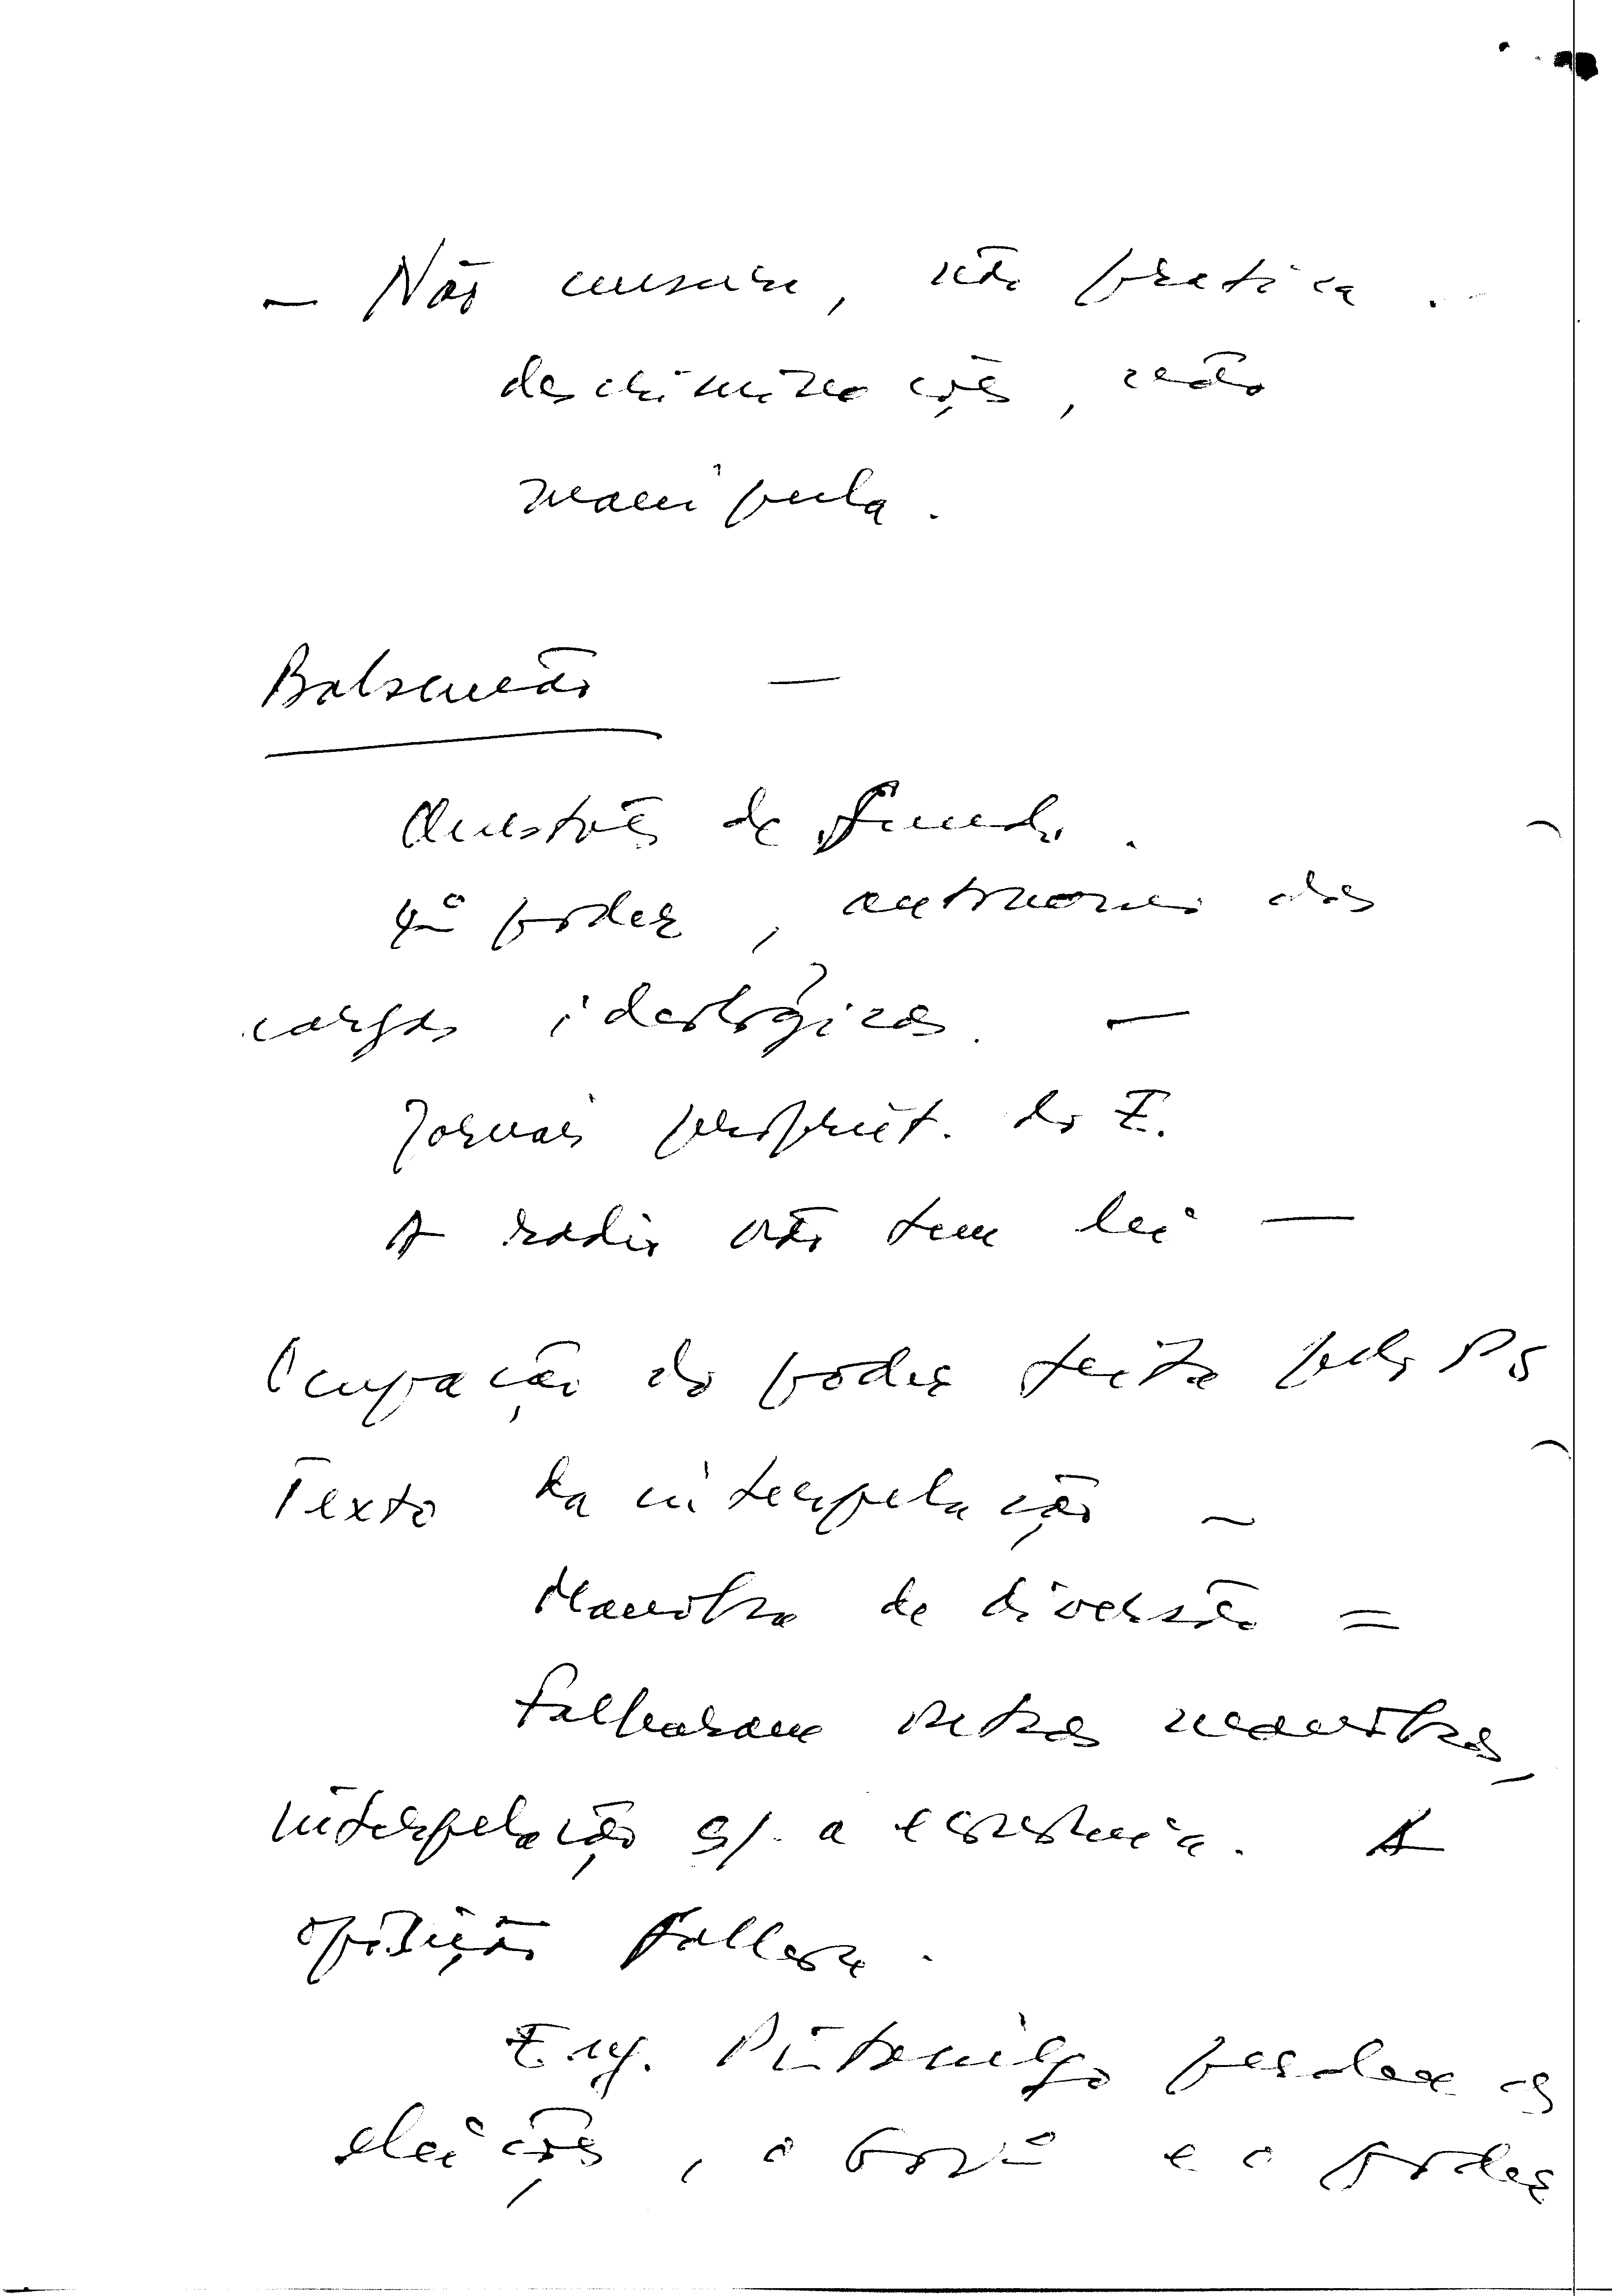 — Não censura, não pratica.
descriminações, não
manipula.
Balsemão —
Questões de fundo.
4º poder, autonomia das
cargas ideológicas. —
Jornais propriet. do E.
A radio não tem lei —
Ocupação do poder feita pelo PS
Texto da interpelação ~
Manobra de diversão =
falharam outras manobras,
interpelação s/. a economia. A
oposição falhou.
Eng. Pintasilgo perdeu as
eleições, o Govº e o poder